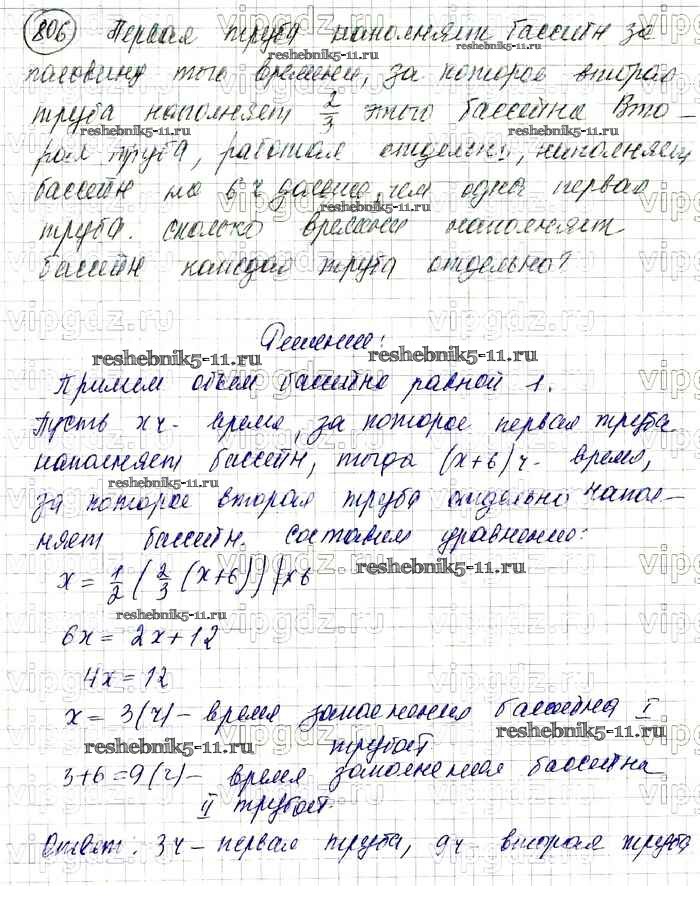 806 Первая труба наполняет бассейн за
половину того времени, за которое вторая
труба наполняет 2/3 этого бассейна. Вто-
рая труба, работая отдельно, наполняет
бассейн на 6 ч дольше, чем одна первая
труба. Сколько времени наполняет
бассейн каждая труба отдельно?
Решение:
Примем объем бассейна равной 1.
Пусть x ч - время, за которое первая труба
наполняет бассейн, тогда (x+6) ч - время,
за которое вторая труба отдельно напол-
няет бассейн. Составим уравнение:
x = 1/2 (2/3 (x+6)) | x6
6x = 2x + 12
4x = 12
x = 3 (ч) - время заполнения бассейна I
трубой
3+6=9 (ч) - время заполнения бассейна
II трубой.
Ответ: 3ч - первая труба, 9ч - вторая труба
reshebnik5-11.ru
vipgdz.ru